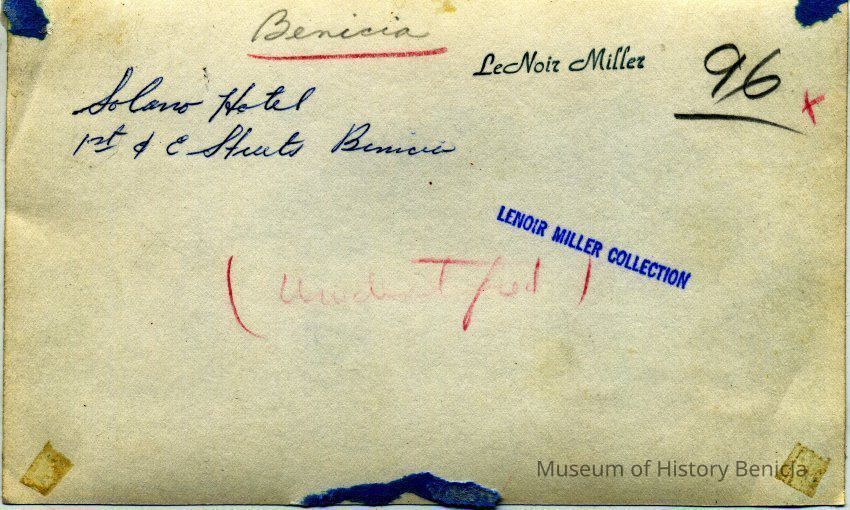 Benicia
LeNoir Miller
96 x
Solano Hotel
1st & E Streets Benicia
LENOIR MILLER COLLECTION
(Unidentified)
Museum of History Benicia